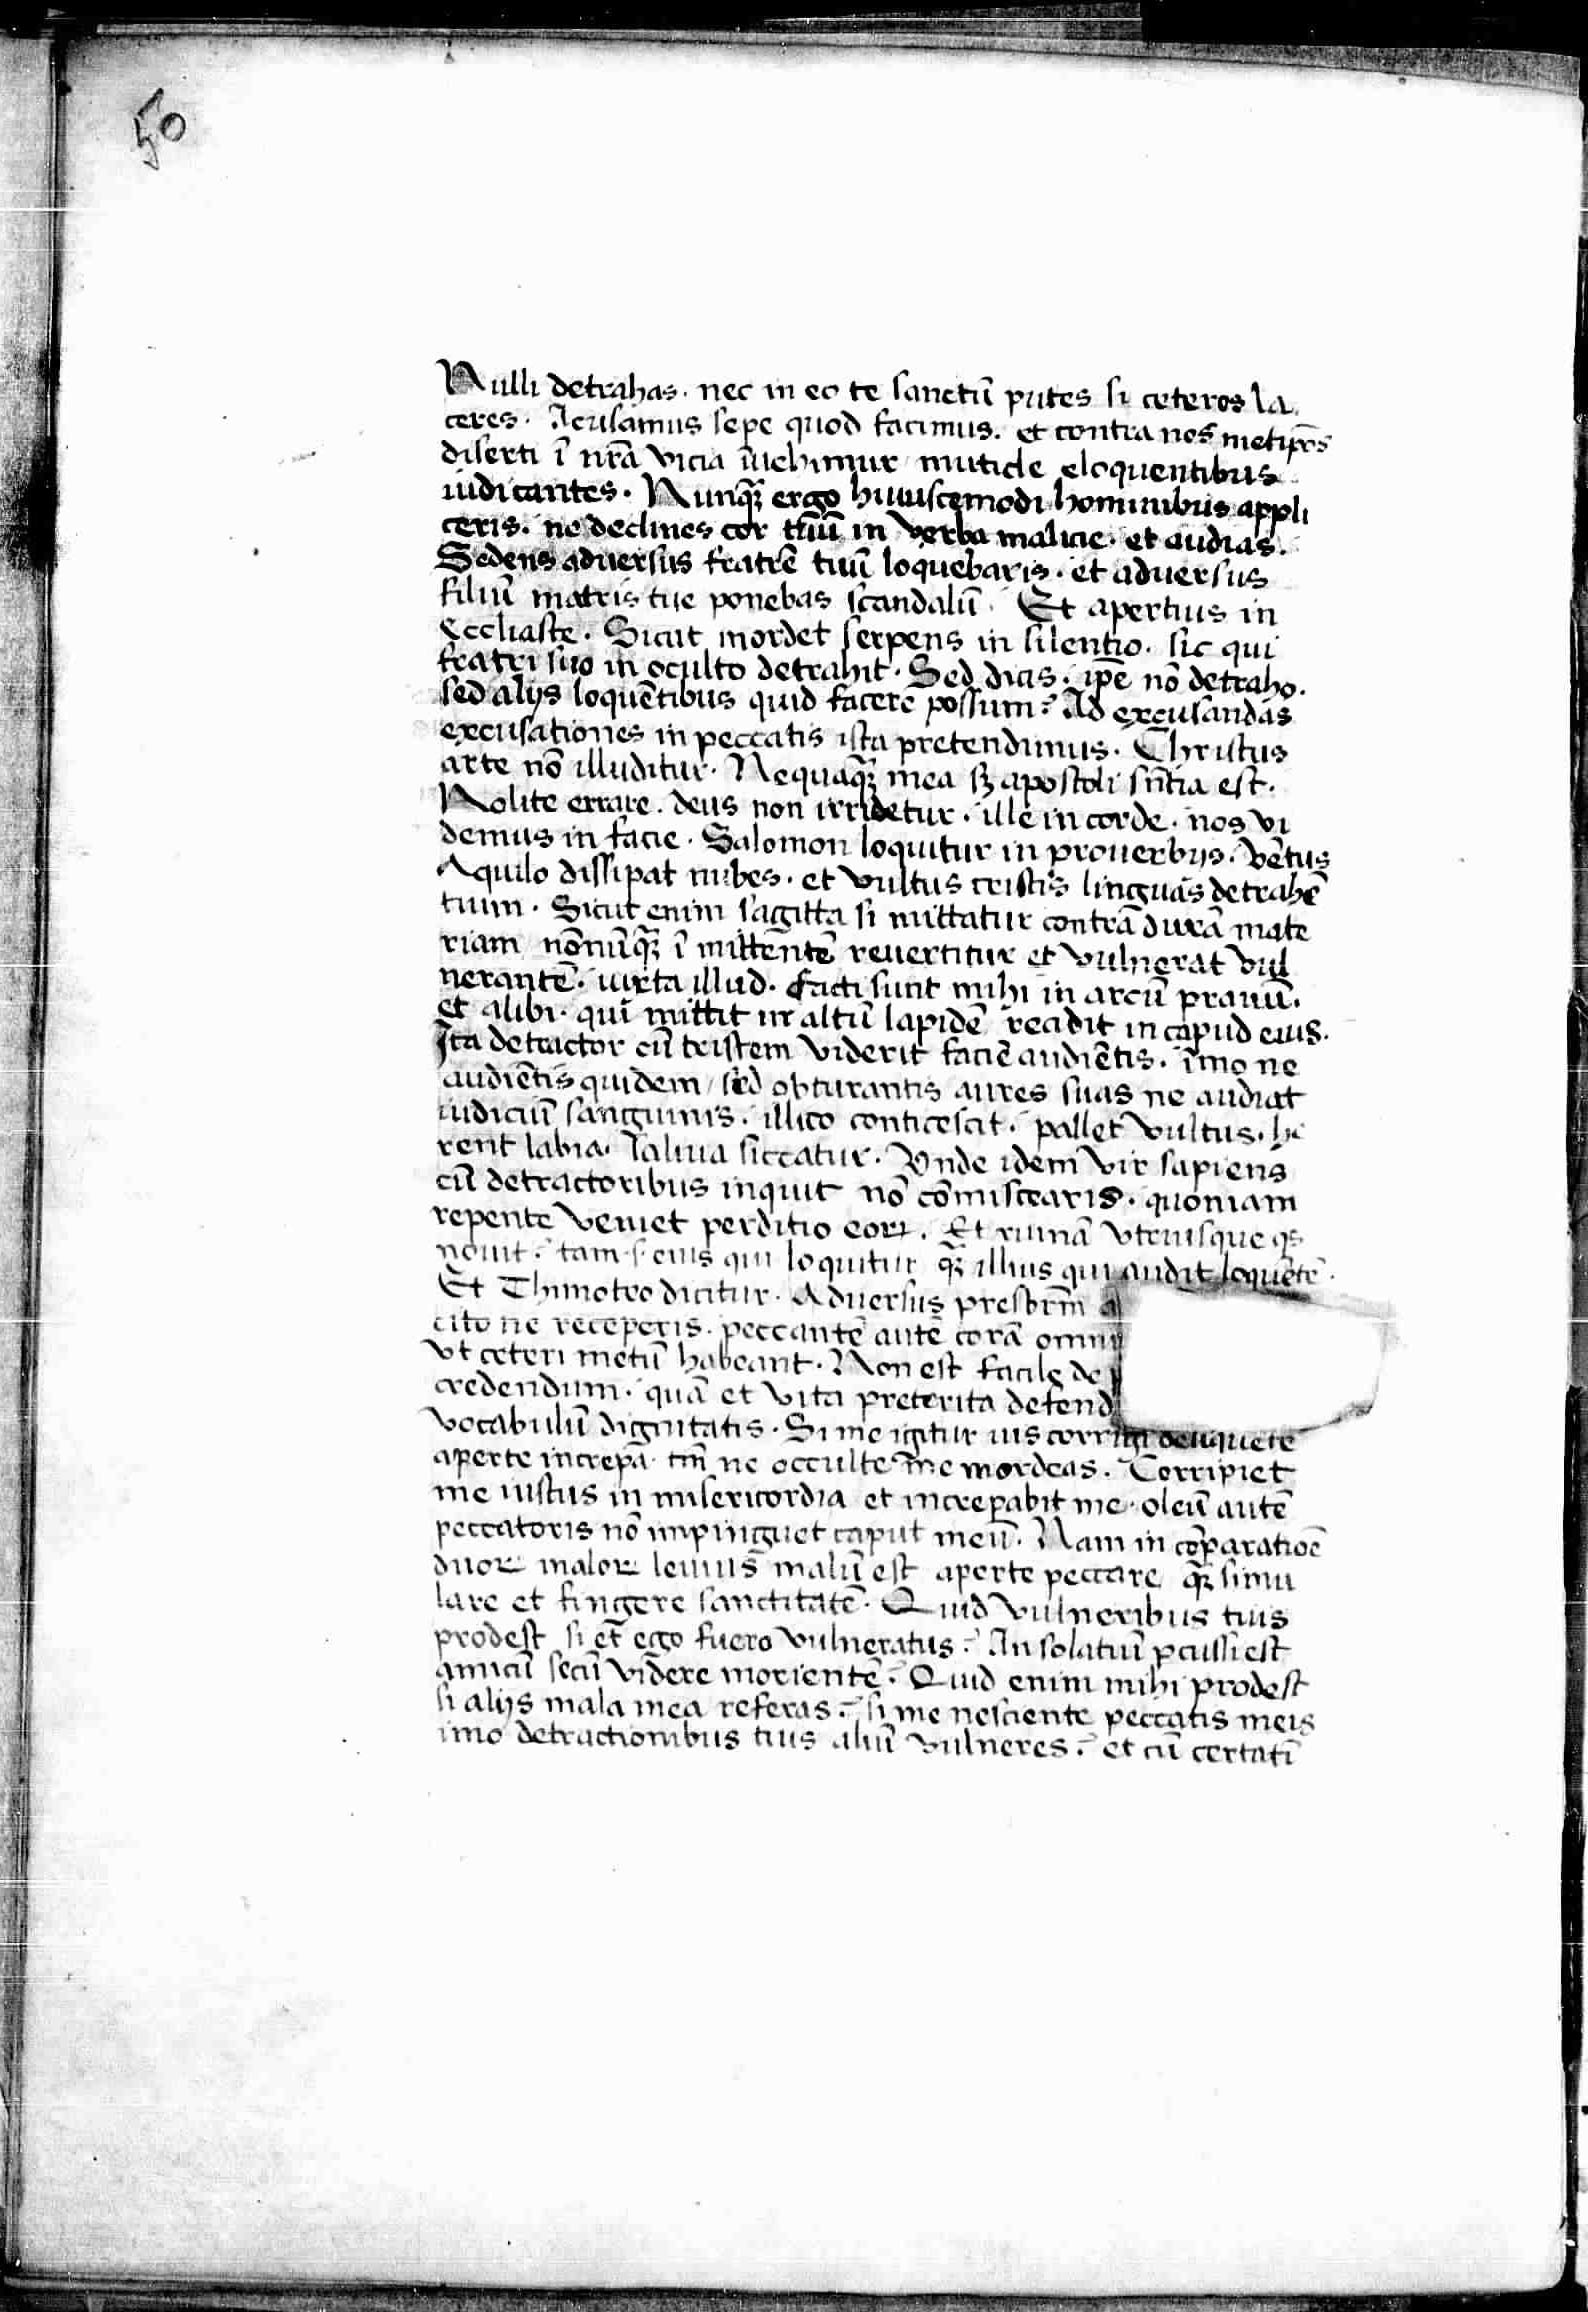 50
Nulli detrahas. nec in eo te sanctū putes si ceteros la
ceres. Acusamus sepe quod facimus. et contra nos metip̄os
diserti ī nr̄a vicia īuehimur mutide eloquentibus
iudicantes. Nunqꝫ ergo huiuscemodi hominibus appli
ceris. ne declines cor tuū in verba malicie. et audias.
Sedens aduersus fratrē tuū loquebaris. et aduersus
filiū matris tue ponebas scandalū. Et apertius in
Eccliaste. Sicut mordet serpens in silentio. sic qui
fratri suo in oculto detrahit. Sed dicis. ip̄e nō detraho.
sed alijs loquētibus quid facere possum? Ad excusandas
excusationes in peccatis ista pretendimus. Christus
arte nō illuditur. Nequaqꝫ mea sꝫ apostoli sn̄tia est.
Nolite errare. deus non irridetur. ille in corde. nos vi
demus in facie. Salomon loquitur in prouerbijs. vētus
Aquilo dissipat nubes. et vultus tristis linguas detrahē
tium. Sicut enim sagitta si mittatur contra durā mate
riam nōnūqꝫ ī mittentē reuertitur et vulnerat vul
nerantē. iuxta illud. facti sunt mihi in arcū prauū.
et alibi. qui mittit in altū lapidē recidit in capud eius.
Ita detractor cū tristem viderit faciē audiētis. īmo ne
audiētis quidem / sed obturantis aures suas ne audiat
iudiciū sanguinis. illico conticescit. pallet vultus. he
rent labia. saliua siccatur. Vnde idem vir sapiens
cū detractoribus inquit nō cōmiscearis. quoniam
repente veniet perditio eoꝝ. Et ruinā vtriusque qs
nouit? tam .s. eius qui loquitur qꝫ illius qui audit loquētē.
Et Thimoteo dicitur. Aduersus presbrm̄ a
cito ne receperis. peccantē autē corā omni
vt ceteri metū habeant. Non est facile de
credendum. quā et vita preterita defend
vocabulū dignitatis. Si me igitur uis corrigi deliquētē
aperte increpa tm̄ ne occulte me mordeas. Corripiet
me iustus in misericordia et increpabit me. oleū autē
peccatoris nō impinguet caput meū. Nam in cōparatiōe
duoꝝ maloꝝ leuius malū est aperte peccare qꝫ simu
lare et fingere sanctitatē. Quid vulneribus tuis
prodest si et̄ ego fuero vulneratus? An solatiū pcussi est
amicū secū videre morientē? Quid enim mihi prodest
si alijs mala mea referas? si me nesciente peccatis meis
imo detractionibus tuis aliū vulneres? et cū certatī